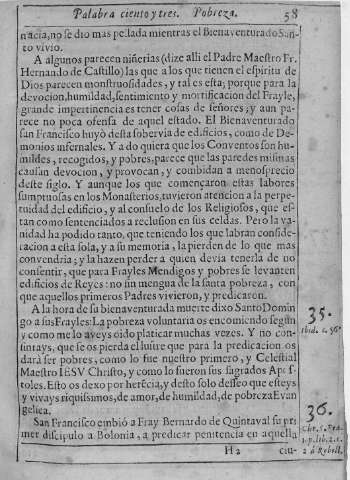 Palabra ciento y tres. Pobreza. 58
nacia, no se dio mas pesada mientras el Bienaventurado San-
to vivio.
A algunos parecen niñerias (dize alli el Padre Maestro Fr.
Hernando de Castillo) las que a los que tienen el espiritu de
Dios parecen monstruosidades, y tal es esta; porque para la
devocion, humildad, sentimiento y mortificacion del Frayle,
grande impertinencia es tener cosas de señores; y aun pa-
rece no poca ofensa de aquel estado. El Bienaventurado
san Francisco huyò desta sobervia de edificios, como de De-
monios infernales. Y a do quiera que los Conventos son hu-
mildes, recogidos, y pobres, parece que las paredes mismas
causan devocion, y provocan, y combidan a menosprecio
deste siglo. Y aunque los que començaron estas labores
sumptuosas en los Monasterios, tuvieron atencion a la perpe-
tuidad del edificio, y al consuelo de los Religiosos, que es-
tan como sentenciados a reclusion en sus celdas. Pero la va-
nidad ha podido tanto, que teniendo los que labran conside-
racion a esta sola, y a su memoria, la pierden de lo que mas
convendria; y la hazen perder a quien devia tenerla de no
consentir, que para Frayles Mendigos y pobres se levanten
edificios de Reyes: no sin mengua de la santa pobreza, con
que aquellos primeros Padres vivieron, y predicaron.
A la hora de su bienaventurada muerte dixo Santo Domin-
go a sus Frayles: La pobreza voluntaria os encomiendo segun
y como me lo aveys oido platicar muchas vezes. Y no con-
sintays, que se os pierda el lustre que para la predicacion os
darà ser pobres, como lo fue nuestro primero, y Celestial
Maestro IESV Christo, y como lo fueron sus sagrados Apos-
toles. Esto os dexo por herēcia, y desto solo desseo que esteys
y vivays riquissimos, de amor, de humildad, de pobreza Evan
gelica.
San Francisco embiò a Fray Bernardo de Quintaval su pri
mer discipulo a Bolonia, a predicar penitencia en aquella
H 2 ciu-
35.
Ibid. c. 56
36.
1.p. lib. 2. c.
2 à Rebell.